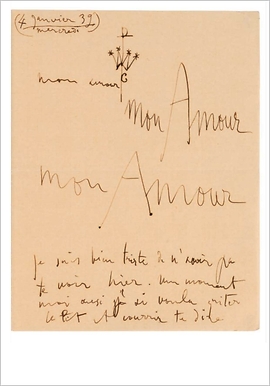 (4 janvier 39)
mercredi
mon amour
Mon Amour
mon Amour
je suis bien triste de n'avoir pu
te voir hier. un moment
moi aussi j'ai voulu
et courrir te dire